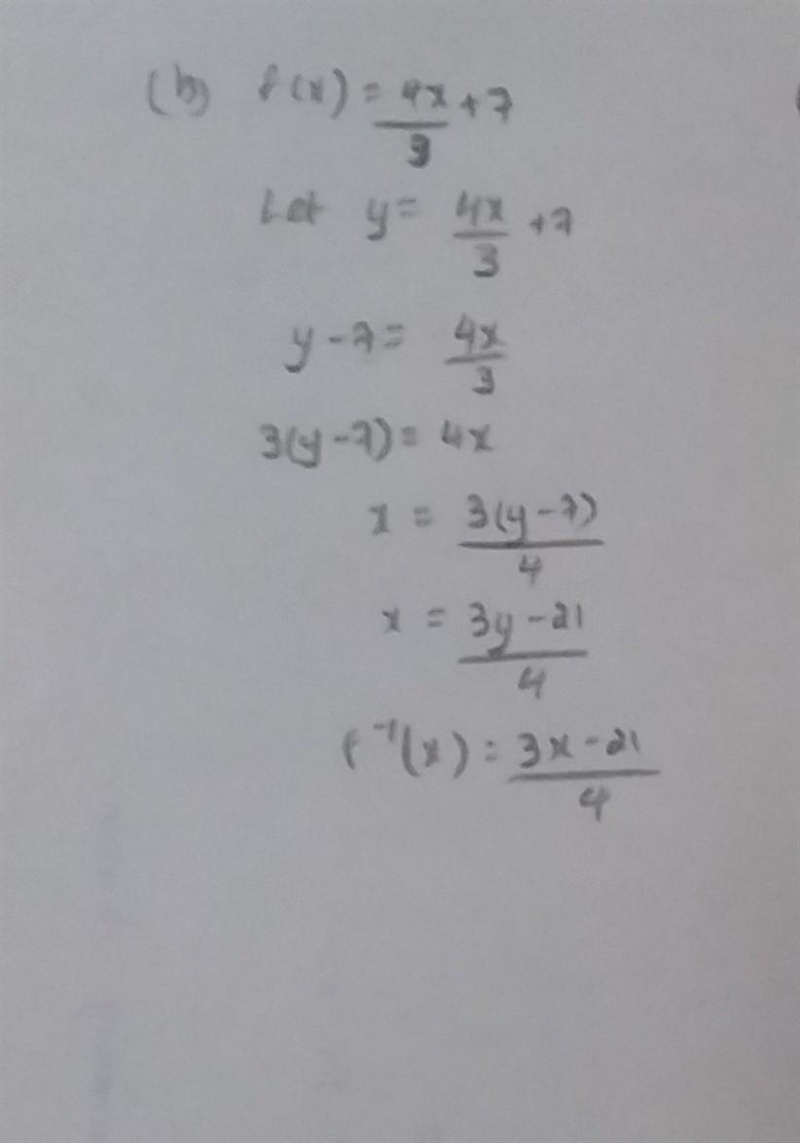 (b) f(x) = 4x/3 + 7
Let y = 4x/3 + 7
y - 7 = 4x/3
3(y - 7) = 4x
x = 3(y - 7)/4
x = 3y - 21/4
f⁻¹(x) = 3x - 21/4